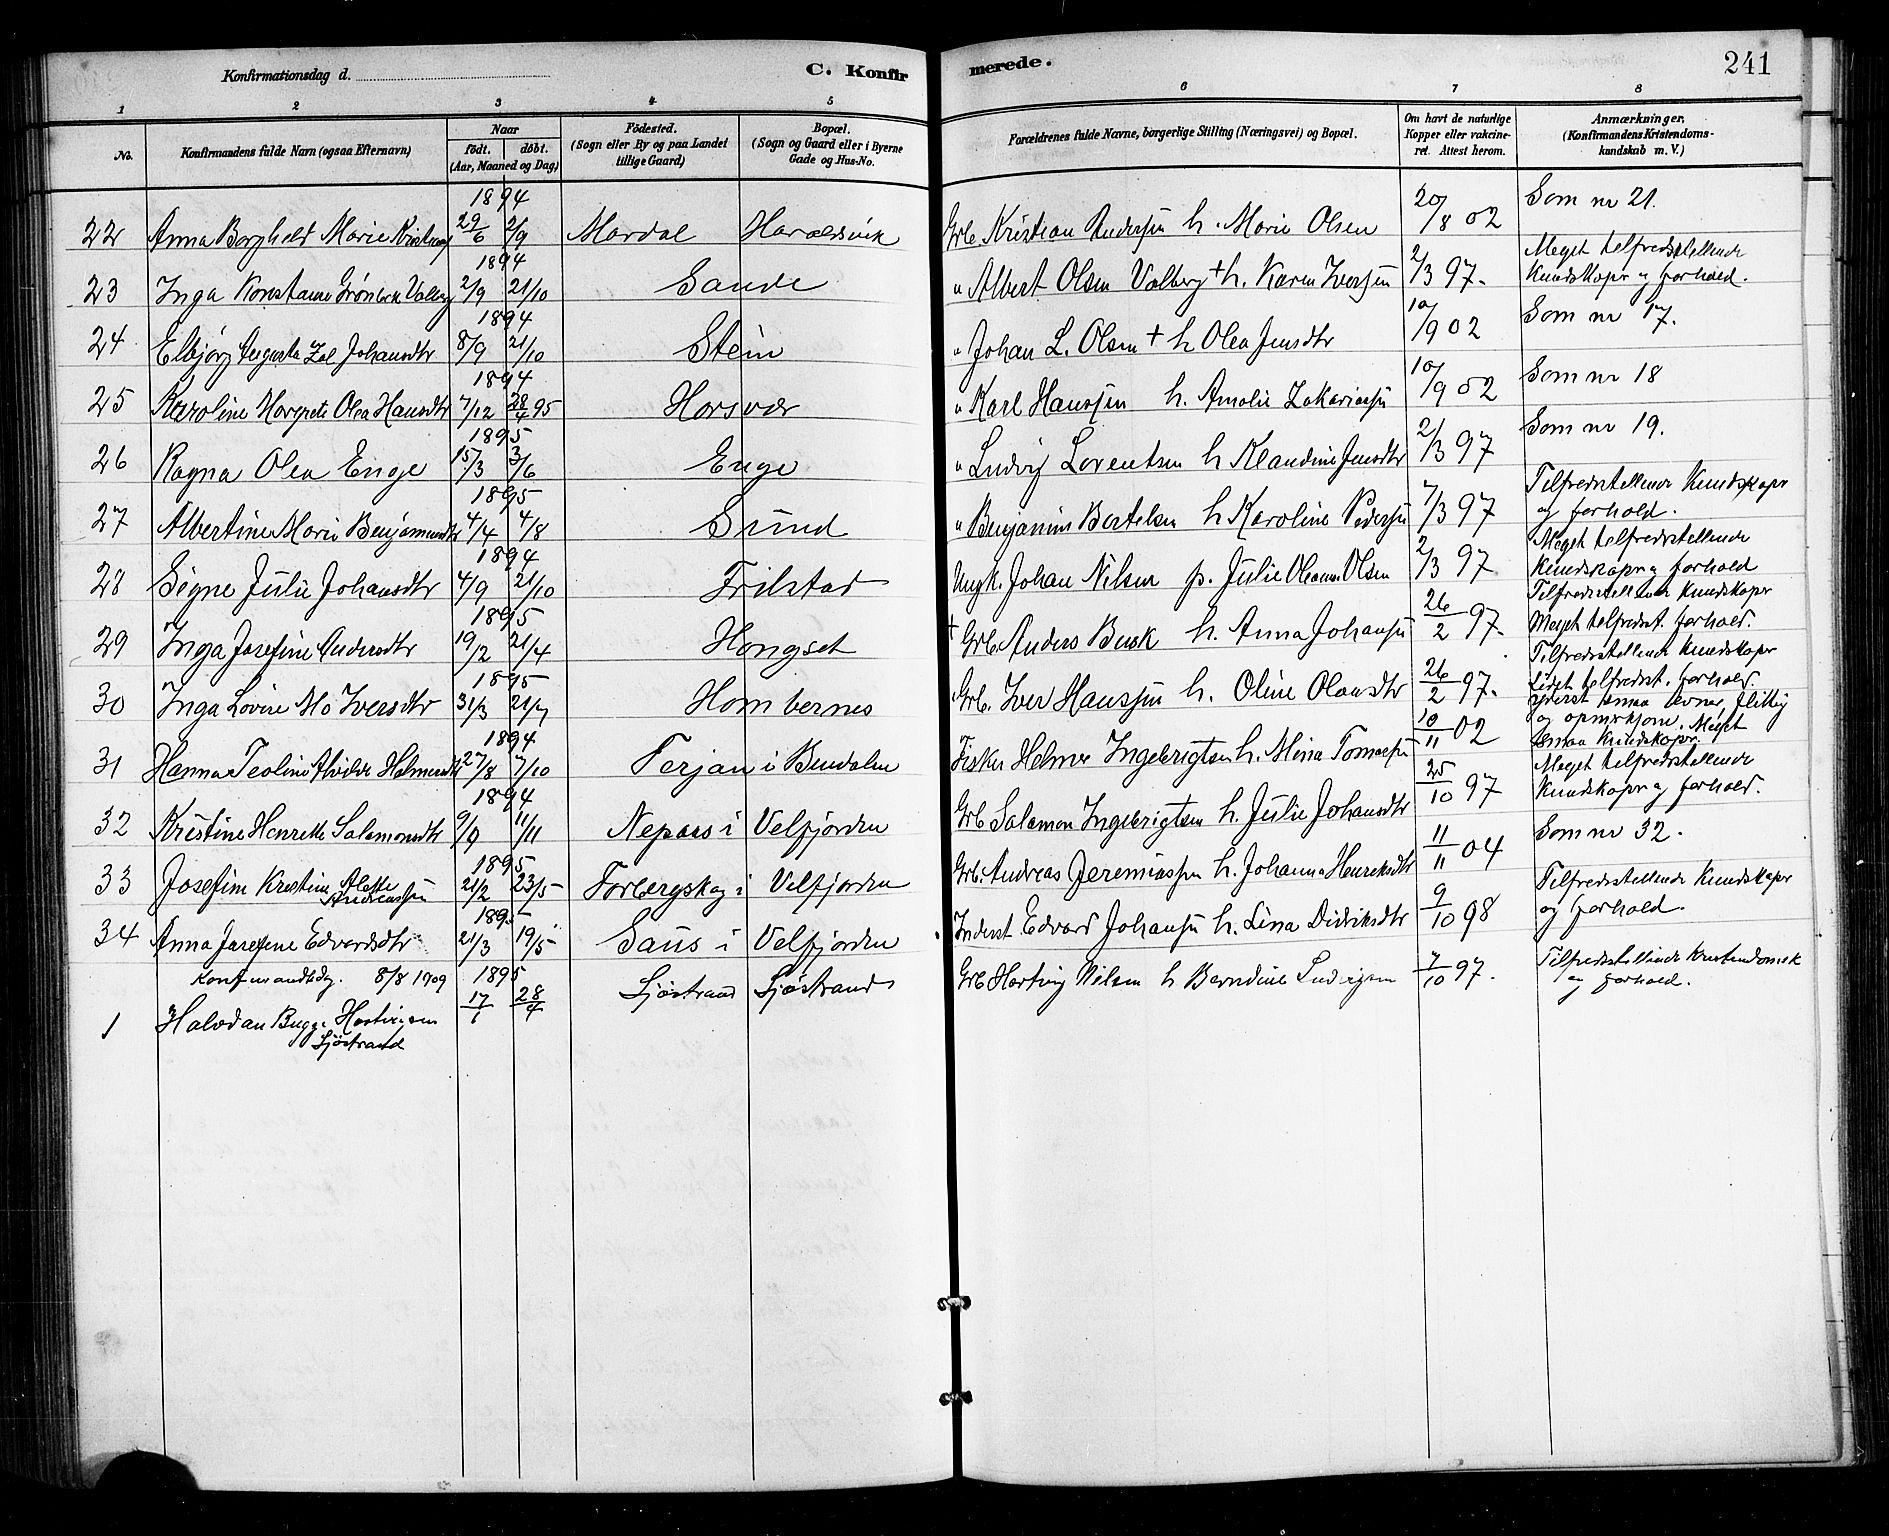 Konfirmationsdag d. C. Konfirmerede. 241
1 2 3 4 5 6 7 8
No. Konfirmandens fulde Navn (ogsaa Efternavn) Naar födt. döbt. (Aar, Maaned og Dag) Födested. (Sogn eller By og paa Landet tillige Gaard) Bopæl. (Sogn og Gaard eller i Byerne Gade og Hus-No. Forældrenes fulde Navne, borgerlige Stilling (Næringsvei) og Bopæl. Om havt de naturlige Kopper eller vakcineret. Attest herom. Anmærkninger. (Konfirmandens Kristendomskundskab m. V.)
1894
22 Anna Borghild Marie 29/6 2/9 Mardal Haraldsvik Grb. Kristian Andersen h. Marie Olsen 20/8 02 Som nr 21.
1894
23 Inga Konstanse Grönbek Valberg 2/9 21/10 Sande " Albert Olsen Valberg + h. Karen Iversen 2/3 97. Meget tilfredsstillende Kundskaper og forhold.
1894
24 Elbjörg Augusta Johansdtr 8/9 21/10 Stein " Johan L. Olsen + h Olea Jensdtr 10/9 02 Som nr 17.
1894
25 Karoline Margrete Olea Hansdtr 7/12 28/4 95 Horsvær " Karl Hansen h. Amalie Zakariassen 10/9 02 Som nr 18
1895
26 Ragna Olea Enge 15/3 3/6 Enge " Ludvig Lorentsen h Klaudine Jensdtr 2/3 97 Som nr 19.
1895
27 Albertine Marie Benjaminsdtr 4/4 4/8 Sund " Benjamin Bertelsen h Karoline Pedersen 7/3 97 Tilfredsstillende Kundskaper og forhold.
1894
28 Signe Julie Johansdtr 4/9 21/10 Trilstad Ungk. Johan Nilsen p. Julie Oleanna Olsen 2/3 97 Meget tilfredsstillende Kundskaper og forhold
1895
29 Inga Josefine Andersdtr 19/2 21/4 Hongset + Grb. Anders Busk h. Anna Johansen 26/2 97. Tilfredsstillende Kundskaper Meget tilfredst. forhold.
1895
30 Inga Lovise Mo Iversdtr 31/3 21/7 Hombernes Grb. Iver Hansen h. Oline Olausdtr 26/2 97. Tilfredsstillende Kundskaper Lidet tilfredst. forhold
1894
31 Hanna Teoline Alvilde Helmersdtr 27/8 7/10 Terjan i Bindalen Fisker Helmer Ingebrigtsen h. Mina Tomassen 10/11 02 yderst smaa evner, flittig og opmerksom. Meget smaa Kundskaper.
1894
32 Kristine Henrette Salamonsdtr 9/9 11/11 Nepaas i Velfjorden Grb Salamon Ingebrigtsen h. Julie Johansdtr 25/10 97 Meget tilfredsstillende Kundskaper og forhold.
1895
33 Josefine Kristine Alette Andreassen 21/2 23/5 Forbergskog i Velfjorden Grb. Andreas Jeremiassen h. Johanna Henriksdtr 11/11 04 Som nr 32.
1895
34 Anna Josefine Edvardsdtr 21/3 19/5 Saus i Velfjorden Inderst Edvard Johansen h. Lina Didriksdtr 9/10 98 Tilfredsstillende Kundskaper og forhold.
Konfirmandsdag. 8/8 1909 1895
1 Halvdan Bugge Hartvigsen Sjöstrand 17/1 28/4 Sjöstrand Sjöstrand Grb Hartvig Nilsen h Berndine Ludvigsen 7/10 97. Tilfredsstillende Kristendomsk og forhold.